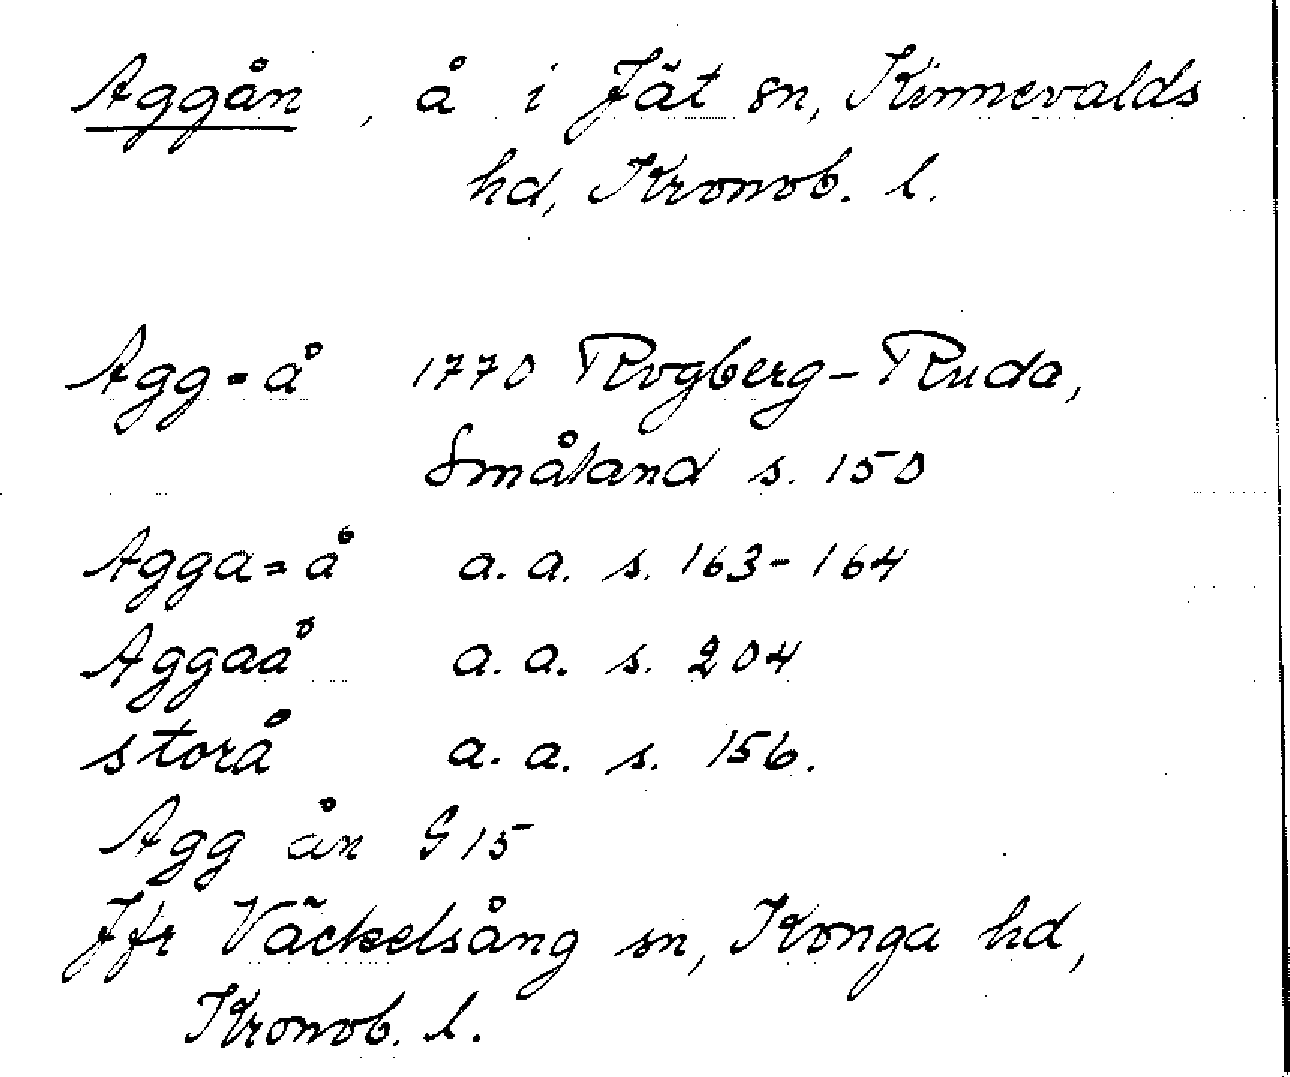 Aggån, å i Jät sn, Kinnevalds
hd, Kronob. l.
Agg-å 1770 Rogberg-Ruda,
Småland s. 150
Agga=å a.a. s. 163-164
Aggaå a.a. s. 204
storå a.a. s. 156.
Agg ån G 15
Jfr Väckelsång sn, Konga hd,
Kronob. l.